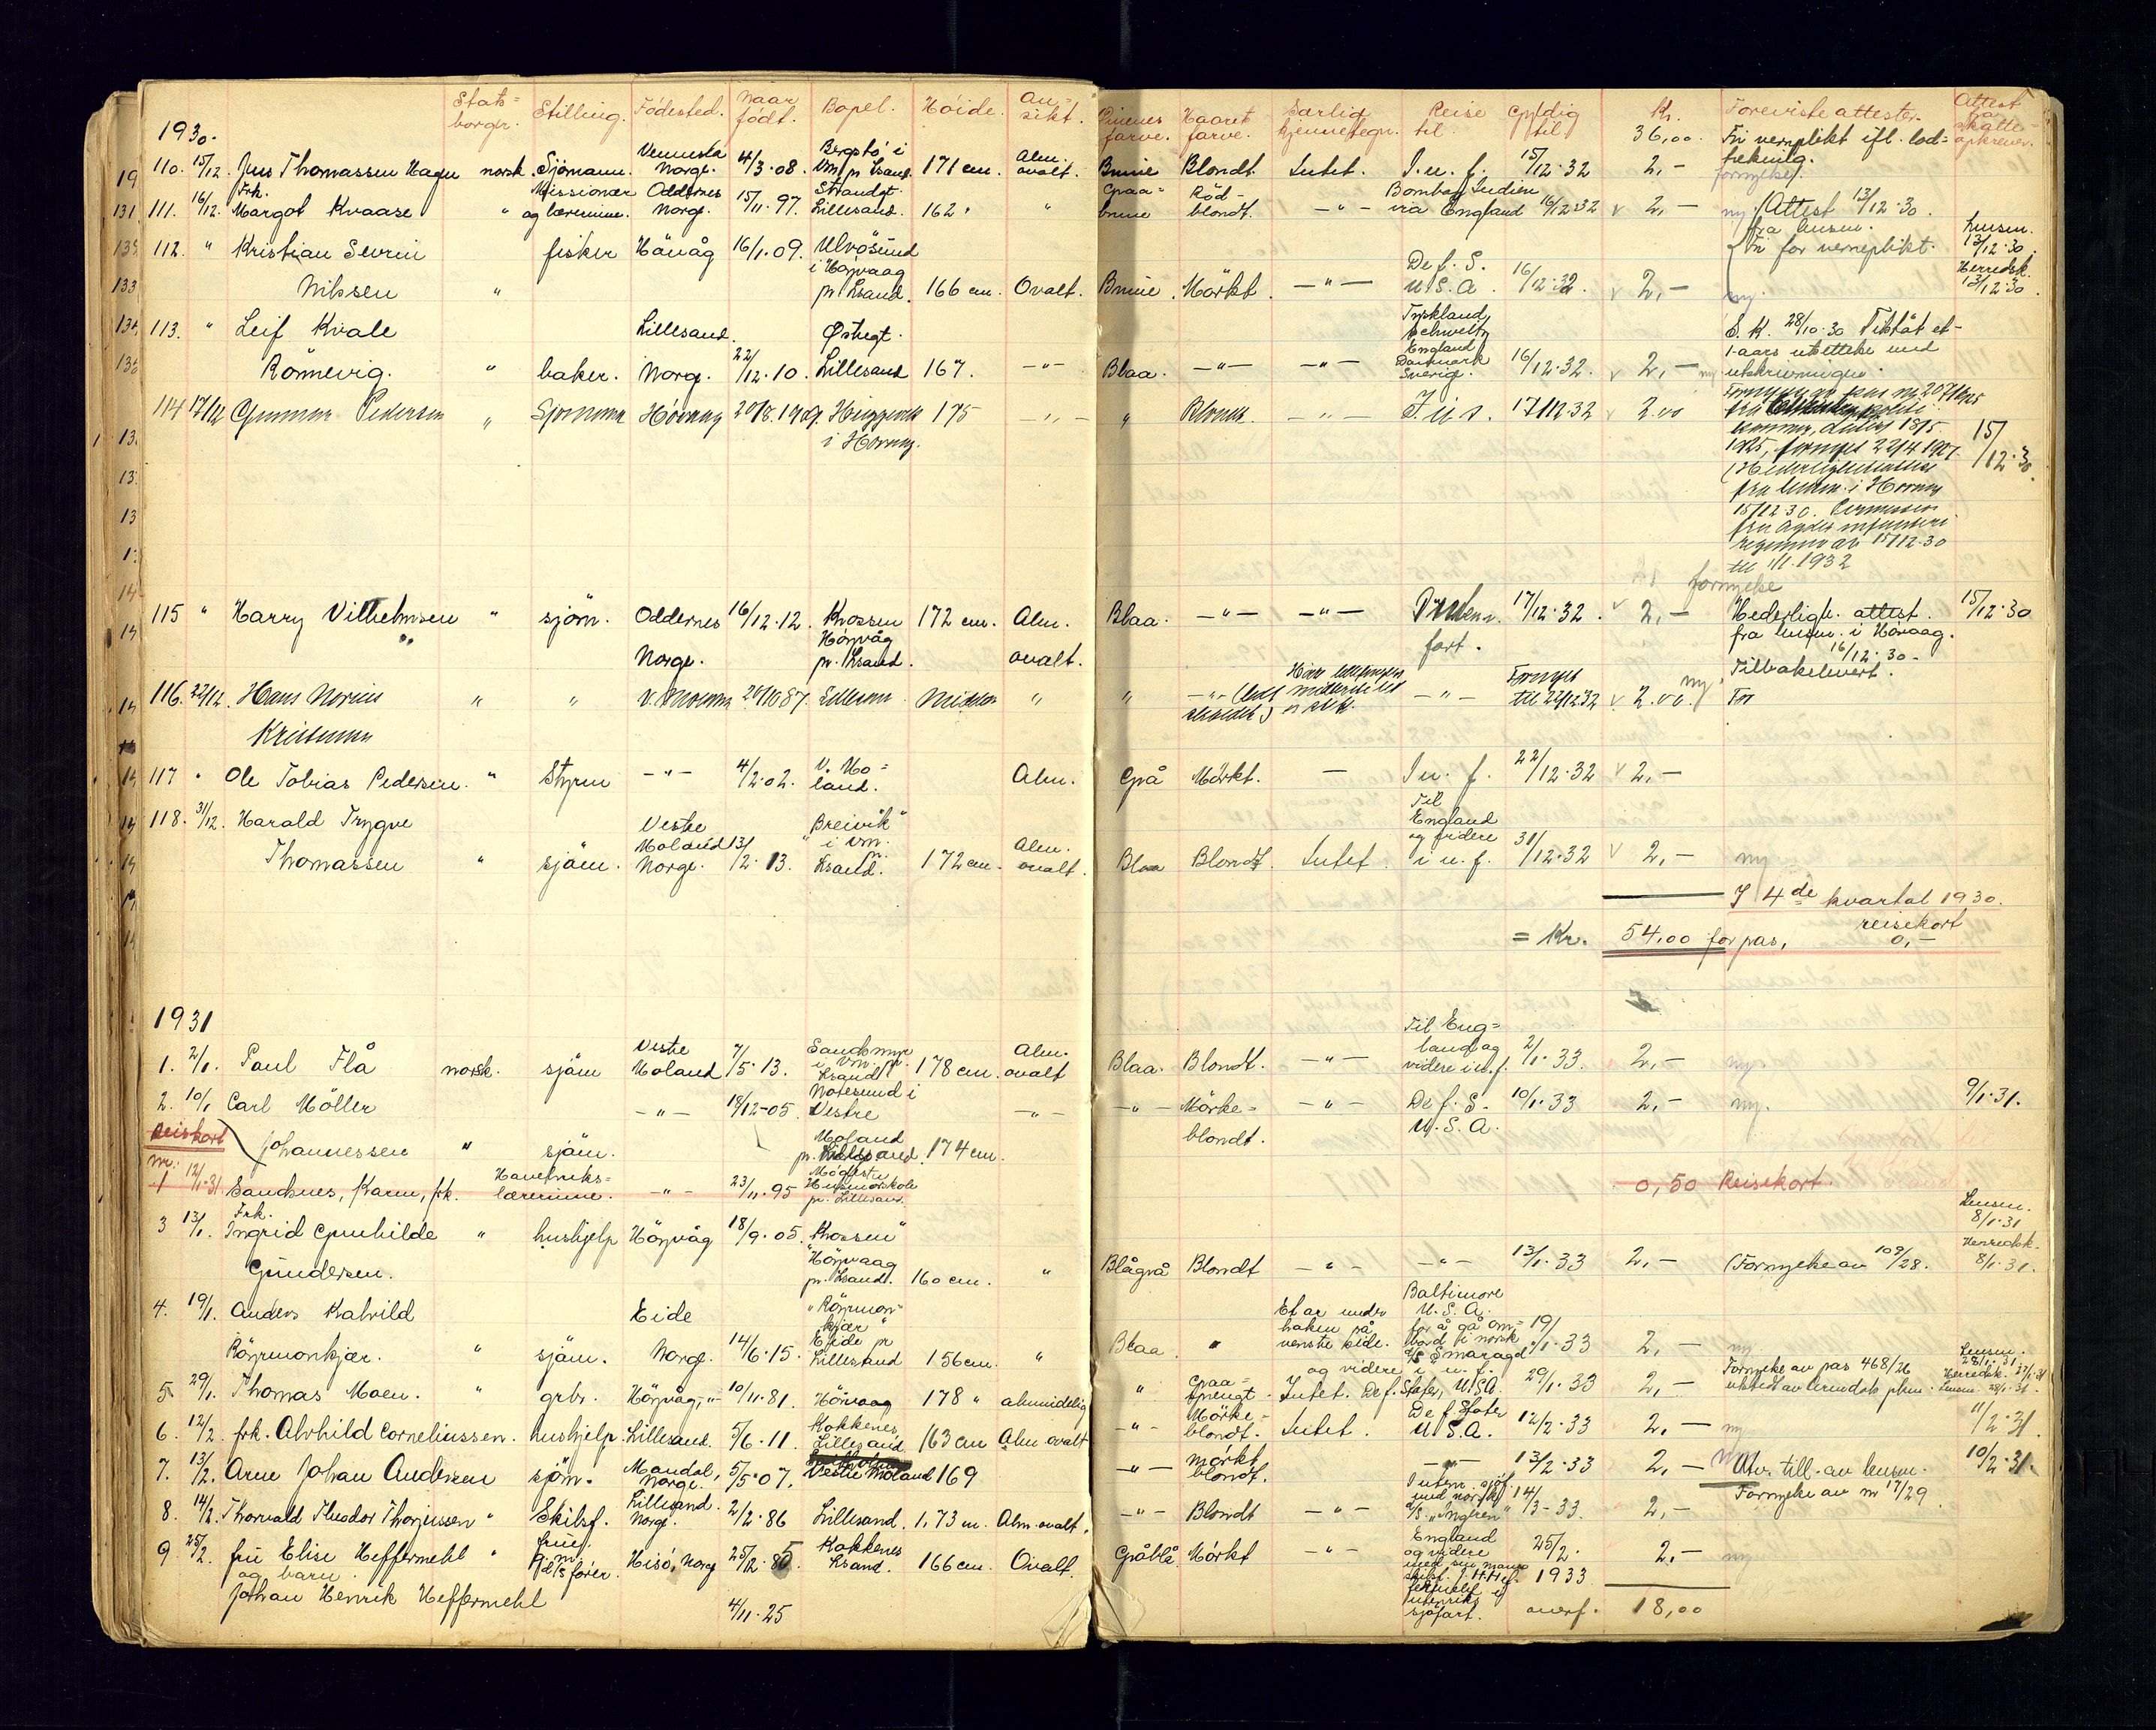 Stats= borger. Stilling. Födested. Naar födt. Bopel. Höide. An= sikt. Öinenes farve. Haarets farve. Særlig kjennetegn. Reise til. Gyldig til. Kr. Foreviste attester. Attest fra skatte= opkrever.
1930. 36,00.
110. 15/12. Jens Thomassen Hagen norsk. Sjömann. Vennesla Norge. 4/3·08. Bergstö i Vm. pr. Lsand. 171 cm. Alm. ovalt. Brune Blondt. Intet. I u. f. 15/12·32 2,- Fri verneplikt ifl. lod= trekning. fornyelse.
111. 16/12. Frk. Margot Kvaase " Missionær og lærerinne. Oddernes Norge. 15/11·97. Strandgt. Lillesand. 162 " " Graa= brune Röd= blondt. -"- Bombay Indien via England 16/12·32 2,- ny. Attest 13/12·30. fra lensm.
112. " Kristian Severin Nilsen " fisker Hövåg 16/1·09. Ulvösund i Høyvaag pr. Lsand. 166 cm. Ovalt. Brune. Mörkt. -"- De f. S. U.S.A. 16/12·32. 2,- Fri for verneplikt. ny. Lensm. 13/12·30. Herredsk. 13/12·30.
113. " Leif Kvale Rönnevig. " baker. Lillesand. Norge. 22/12·10. Østregt. Lillesand 167. -"- Blaa. -"- -"- Tyskland, Schweitz England Danmark Sverige. 16/12·32. 2,- ny E. K. 28/10·30 Tilstået et- 1-aars utsettelse med utskrivningen.
114 17/12 Gunnar Pedersen " Sjømann Hövaag 20/8·1909. i Hövaag. 175 -"- " Blond. -"- I. u. f. 17/12·32 2.00 fra lensm. i Hövaag 15/12 30. Permission fra Agder infanteri regiment av 15/12-30 til 1/1·1932 15/12·30.
115 " Harry Vilhelmsen " sjöm. Oddernes Norge. 16/12·12. Krossen Höyvåg pr. Lsand. 172 cm. Alm. ovalt. Blaa. -"- -"- fart. 17/12·32. 2,- fornyelse Hederligh. attest. fra lensm. i Hövaag. 16/12·30. Tilbakelevert. 15/12·30
116. 22/12. Hans Norius Kristensen " " V. Moland 20/10 87. Lillesand. Middels " " -"- -"- Fornyet til 22/12 32 2.00. ny. For
117 " Ole Tobias Pedersen. " Styrm -"- 4/2·02. V. Mo= land. Alm. Grå Mörkt. - I u. f. 22/12·32 2,-
118. 31/12. Harald Trygve Thomassen " sjöm. Vestre Moland Norge. 13/2·13. "Breivik" i Vm. pr. Lsand. 172 cm. Alm. ovalt. Blaa Blondt. Intet. Til England og videre i u. f. 31/12·32 2,- ny
I 4de kvartal 1930.
= Kr. 54,00 for pas, reisekort 0,-
1931
1. 2/1. Paul Flå norsk. sjöm Vestre Moland 7/5·13. Sandsmyr i Vm. pr. Lsand. 178 cm. Alm. ovalt Blaa. Blondt. -"- Til Eng= land og videre i u. f. 2/1·33 2,- ny.
2. 10/1 Carl Möller Johannessen " sjöm. -"- 18/12-05. Notesund i Vestre Moland pr. Lillesand. 174 cm. -"- -"- Mörke= blondt. -"- De f. S. U.S.A. 10/1·33 2,- ny. 9/1·31.
Reisekort nr. 1 12/1-31 Sandnes, Karen, frk. Havebruks= lærerinne. -"- 23/11·95 Høgestu Husmorskole pr. Lillesand. 0,50 Reisekort.
3 13/1. Frk. Ingrid Gunhilde Gundersen. " hushjelp Höyvåg 18/9·05. "Krossen" Höyvaag pr. Lsand. 160 cm. " Blågrå Blondt -"- -"- 13/1·33 2,- (Fornyelse av 109/28. Lensm. 8/1·31 Herredsk. 8/1·31.
4. 19/1. Anders Kalvild Röyrmonkjær. " sjöm. Eide Norge. 14/6·15. "Röyrmon= kjær" Eide pr Lillesand 156 cm. " Blaa " Et ar under haken på venstre side. Baltimore U.S.A. for å gå om= bord i norsk D/S Smaragd og videre i u. f. 19/1·33 2,- ny.
5. 29/1. Thomas Moen. " grbr. Höyvåg, -"- 10/11·81. Hövaag 178 " almindelig " Graa= sprengt. Intet. De f. Stater, U.S.A. 29/1·33 2,- Fornyelse av pas 468/26 utstedt av Arendals pkm. Lensm. 28/1·31. Herredsk. 27/1·31
6. 12/2. frk. Alvhild Corneliussen. hushjelp. Lillesand. 5/6·11. Kokkenes, Lillesand 163 cm Alm. ovalt -"- Mörke= blondt. Intet. De f. Stater U.S.A. 12/2·33 2,- ny 11/2·31
7. 13/2. Arne Johan Andersen sjöm. Mandal, Norge. 5/5·07. Vestre Moland 169 -"- mørkt blondt. -"- 13/2·33 2,- ny Utv. till. av lensm. 10/2·31.
8. 14/2. Thorvald Theodor Thorjussen " Skibsf. Lillesand. Norge. 2/2·86 Lillesand. 1,73 m. Alm. ovalt. -"- Blondt -"- Utenr. sjöf. med norsk D/S "Yngren" 14/3-33. 2,- Fornyelse av nr 17/29
9. 25/2. fru Elise Heffermehl og barn Johan Henrik Heffermehl " frue, Hisö, Norge 25/12·85 4/11·25 Kokkenes Lsand. 166 cm. Ovalt. Gråblå. Mörkt -"- England og videre med sin mann utenriks sjöfart. 25/2· 1933 2,- ny
overf. 18,00